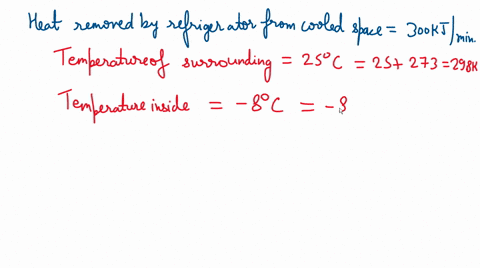 Heat removed by refrigerator from cooled space = 300KJ/min.
Temperature of surrounding = 25°C = 25+ 273 = 298K
Temperature inside = -8°C = -8